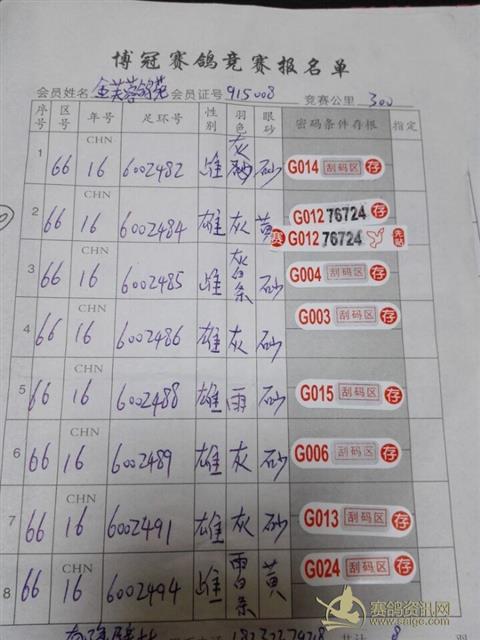 博冠赛鸽竞赛报名单
会员姓名 金芙蓉鸽苑 会员证号 915008 竞赛公里 300
序号 区号 年号 足环号 性别 羽色 眼砂 密码条件存根 指定
CHN
1 66 16 6002482 雌 灰 砂 G014 刮码区 存
CHN
2 66 16 6002484 雄 灰 黄 G012 76724 存
赛 G012 76724
CHN
3 66 16 6002485 雌 灰白条 砂 G004 刮码区 存
CHN
4 66 16 6002486 雄 灰 砂 G003 刮码区 存
CHN
5 66 16 6002488 雄 雨 砂 G015 刮码区 存
CHN
6 66 16 6002489 雄 灰 砂 G006 刮码区 存
CHN
7 66 16 6002491 雄 灰 砂 G013 刮码区 存
CHN
8 66 16 6002494 雌 雨白条 黄 G024 刮码区 存
赛鸽资讯网
www.saige.com